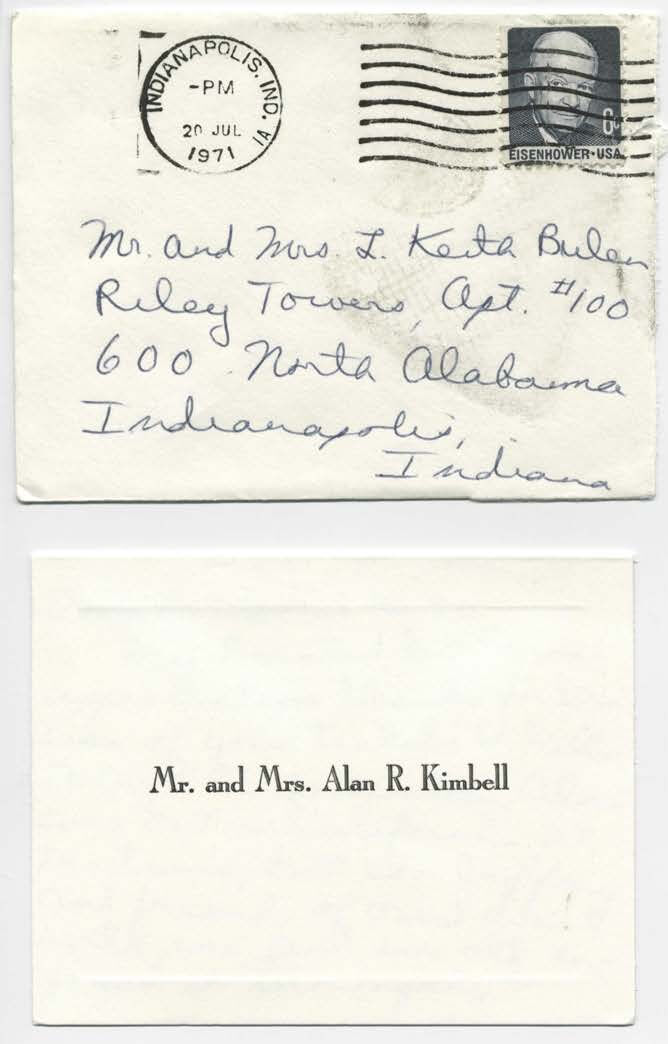 INDIANAPOLIS, IND. 1A
-PM
20 JUL
1971
6¢
EISENHOWER·USA
Mr. and Mrs. L. Keith Bulen
Riley Towers, Apt. #100
600 North Alabama
Indianapolis,
Indiana
Mr. and Mrs. Alan R. Kimbell